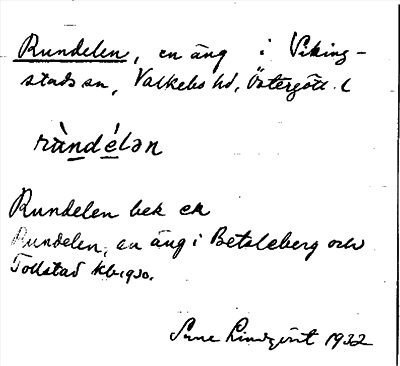 Rundelen, en äng i Viking-
stads sn, Valkebo hd, Östergötl. l
ràndélən
Rundelen bek en
Rundelen, en äng i Betsleberg och
Tollstad kbr 1930.
Sune Lindqvist 1932